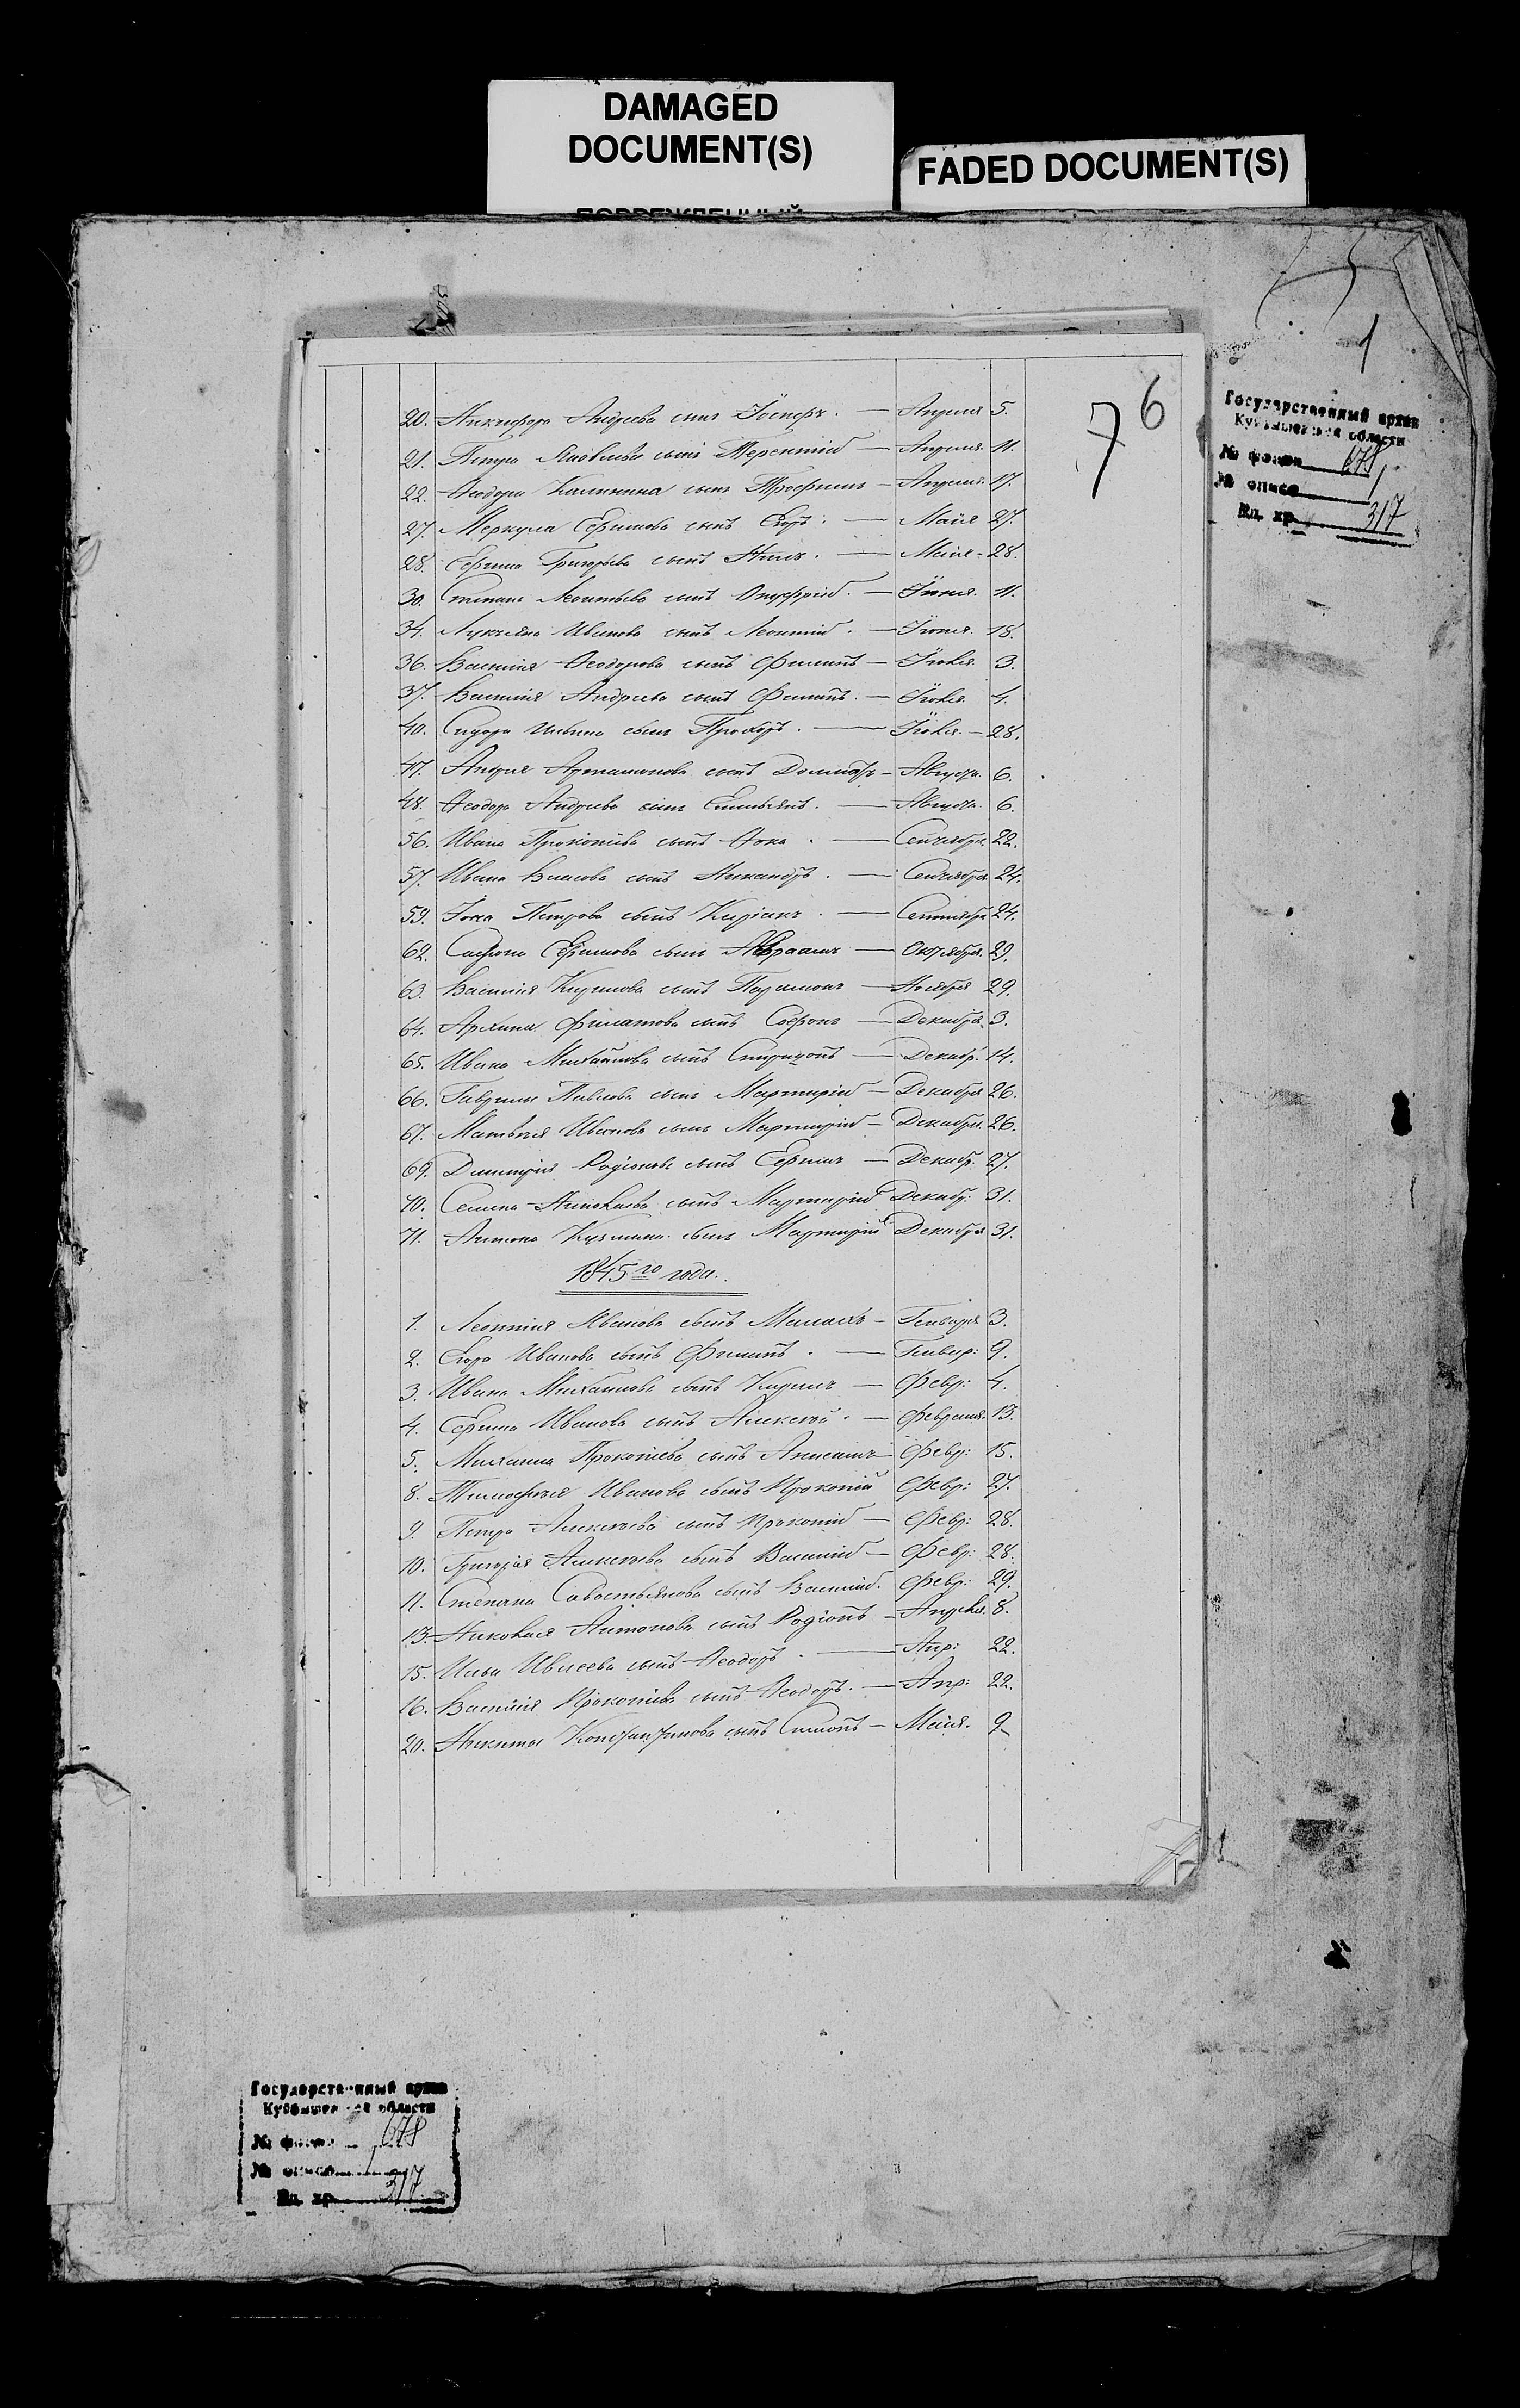 DAMAGED
DOCUMENT(S)
FADED DOCUMENT(S)
1
7 6
Государственный архив
Куйбышевской области
№ фонда 678
№ описи 1
Ед. хр. 317
20. Никифора Андреева сынъ Іосифъ. — Апреля 5.
21. Петра Яковлева сынъ Терентій — Апреля. 11.
22. Ѳеодора Калинина сынъ Трофимъ — Апреля. 17.
27. Меркула Ефимова сынъ Егоръ. — Маія 27.
28. Ефима Григорьева сынъ Нилъ. — Маія - 28.
30. Степана Леонтьева сынъ Онуфрій. — Іюня. 11.
34. Лукьяна Иванова сынъ Леонтій. — Іюня. 18.
36. Василія Ѳеодорова сынъ Филипъ — Іюля. 3.
37. Василія Андреева сынъ Филипъ. — Іюля. 4.
40. Сидора Ильина сынъ Прохоръ. — Іюля. — 28.
47. Андрея Артамонова сынъ — Августа. 6.
48. Ѳеодора Андреева сынъ Емельянъ. — Августа. 6.
56. Ивана Прокопіева сынъ Ѳока. — Сентября. 22.
57. Ивана Власова сынъ Никандръ. — Сентября 24.
59. Іона Петрова сынъ Киріакъ. — Сентября 24.
62. Сафрона Ефимова сынъ Авраамъ — Октября. 29.
63. Василія Кирилова сынъ Парамонъ — Ноября 29.
64. Архипа Филатова сынъ Софронъ — Декабря. 3.
65. Ивана Михайлова сынъ Спиридонъ — Декабр. 14.
66. Гаврилы Павлова сынъ Мартирій — Декабря 26.
67. Матвѣя Иванова сынъ Мартирій — Декабря. 26.
69. Дмитрія Родіонова сынъ Ефимъ — Декабр. 27.
70. Семена Николаева сынъ Мартирій Декабр: 31.
71. Антона Кузмина сынъ Мартирій Декабря 31.
1845го года.
1. Леонтія Иванова сынъ Малахъ — Генваря 3.
2. Егора Иванова сынъ Филипъ. — Генвар: 9.
3. Ивана Михайлова сынъ Кирилъ — Февр: 4.
4. Ефима Иванова сынъ Алексѣй. — Февраля. 13.
5. Михаила Прокопіева сынъ Анисимъ — Февр: 15.
8. Тимофѣя Иванова сынъ Прокопій Февр: 27.
9. Петра Алексѣева сынъ Прокопій — Февр: 28.
10. Григорія Алексѣева сынъ Василій — Февр: 28.
11. Степана Савостьянова сынъ Василій. Февр: 29.
13. Николая Антонова сынъ Родіонъ — Апреля. 8.
15. Ильи Ивлеева сынъ Ѳеодоръ. — Апр: 22.
16. Василія Прокопіева сынъ Ѳеодоръ. — Апр: 22.
20. Никиты Константинова сынъ Симонъ — Маія. 9
Государственный архив
Куйбышевской области
№ фонда 678
№ описи 1
Ед. хр. 317